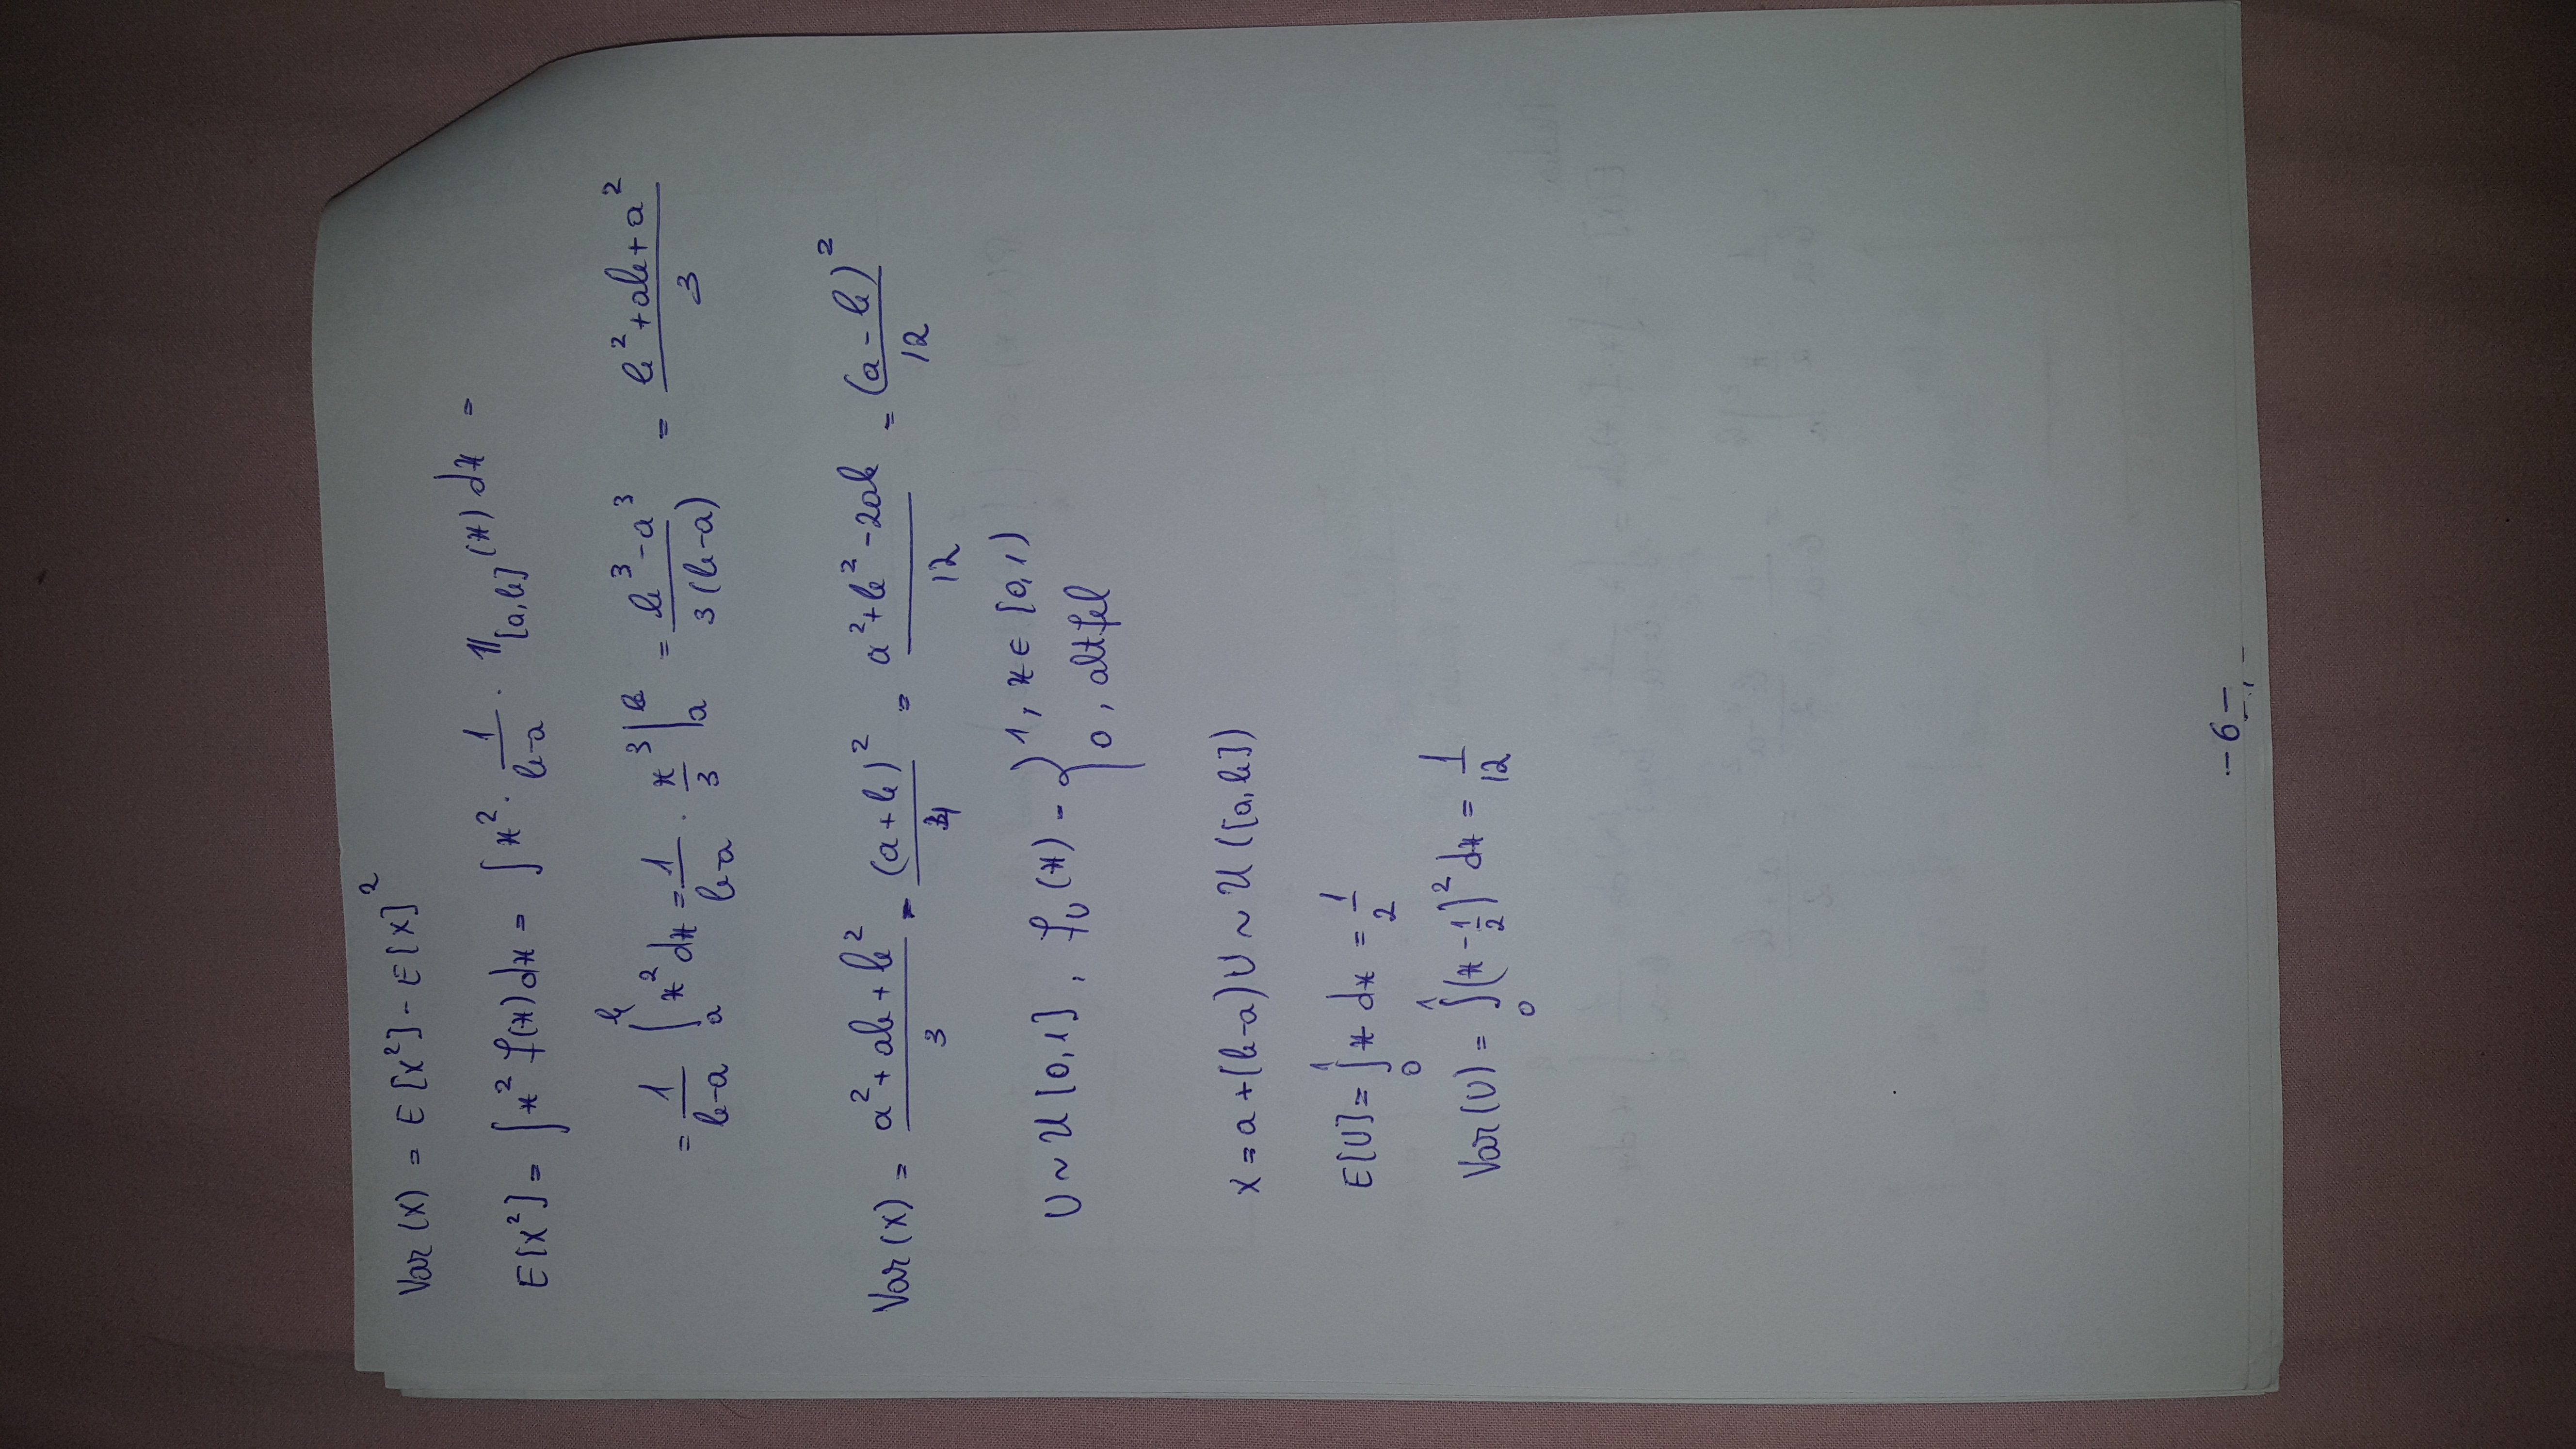 Var(X) = E[X²] - E[X]²
E[X²] = ∫x² f(x) dx = ∫x² · 1/(b-a) · 𝟙_[a,b](x) dx =
= 1/(b-a) ∫_a^b x² dx = 1/(b-a) · x³/3 |_a^b = (b³-a³)/(3(b-a)) = (b²+ab+a²)/3
Var(X) = (a²+ab+b²)/3 - (a+b)²/4 = (a²+b²-2ab)/12 = (a-b)²/12
U ~ U[0,1], f_U(x) = { 1, x ∈ [0,1)
0, altfel
X = a+(b-a)U ~ U([a,b])
E[U] = ∫_0^1 x dx = 1/2
Var(U) = ∫_0^1 (x - 1/2)² dx = 1/12
-6-